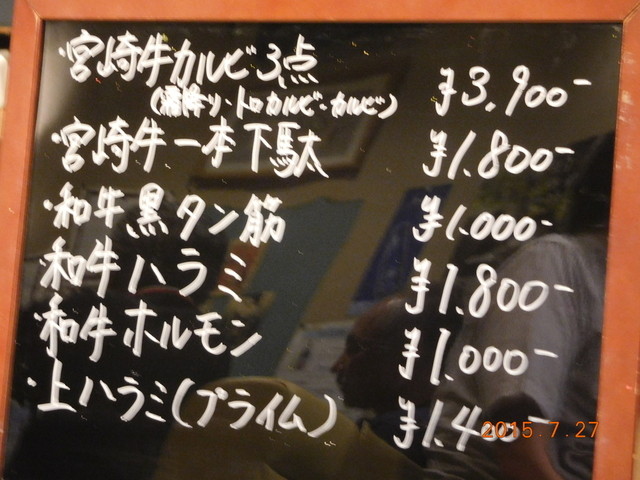 ・宮崎牛カルビ3点 ¥3.900-
(霜降り・トロカルビ・カルビ)
・宮崎牛一本下駄 ¥1.800-
・和牛黒タン筋 ¥1.000-
・和牛ハラミ ¥1.800-
・和牛ホルモン ¥1.000-
・上ハラミ(プライム) ¥1.400-
2015.7.27